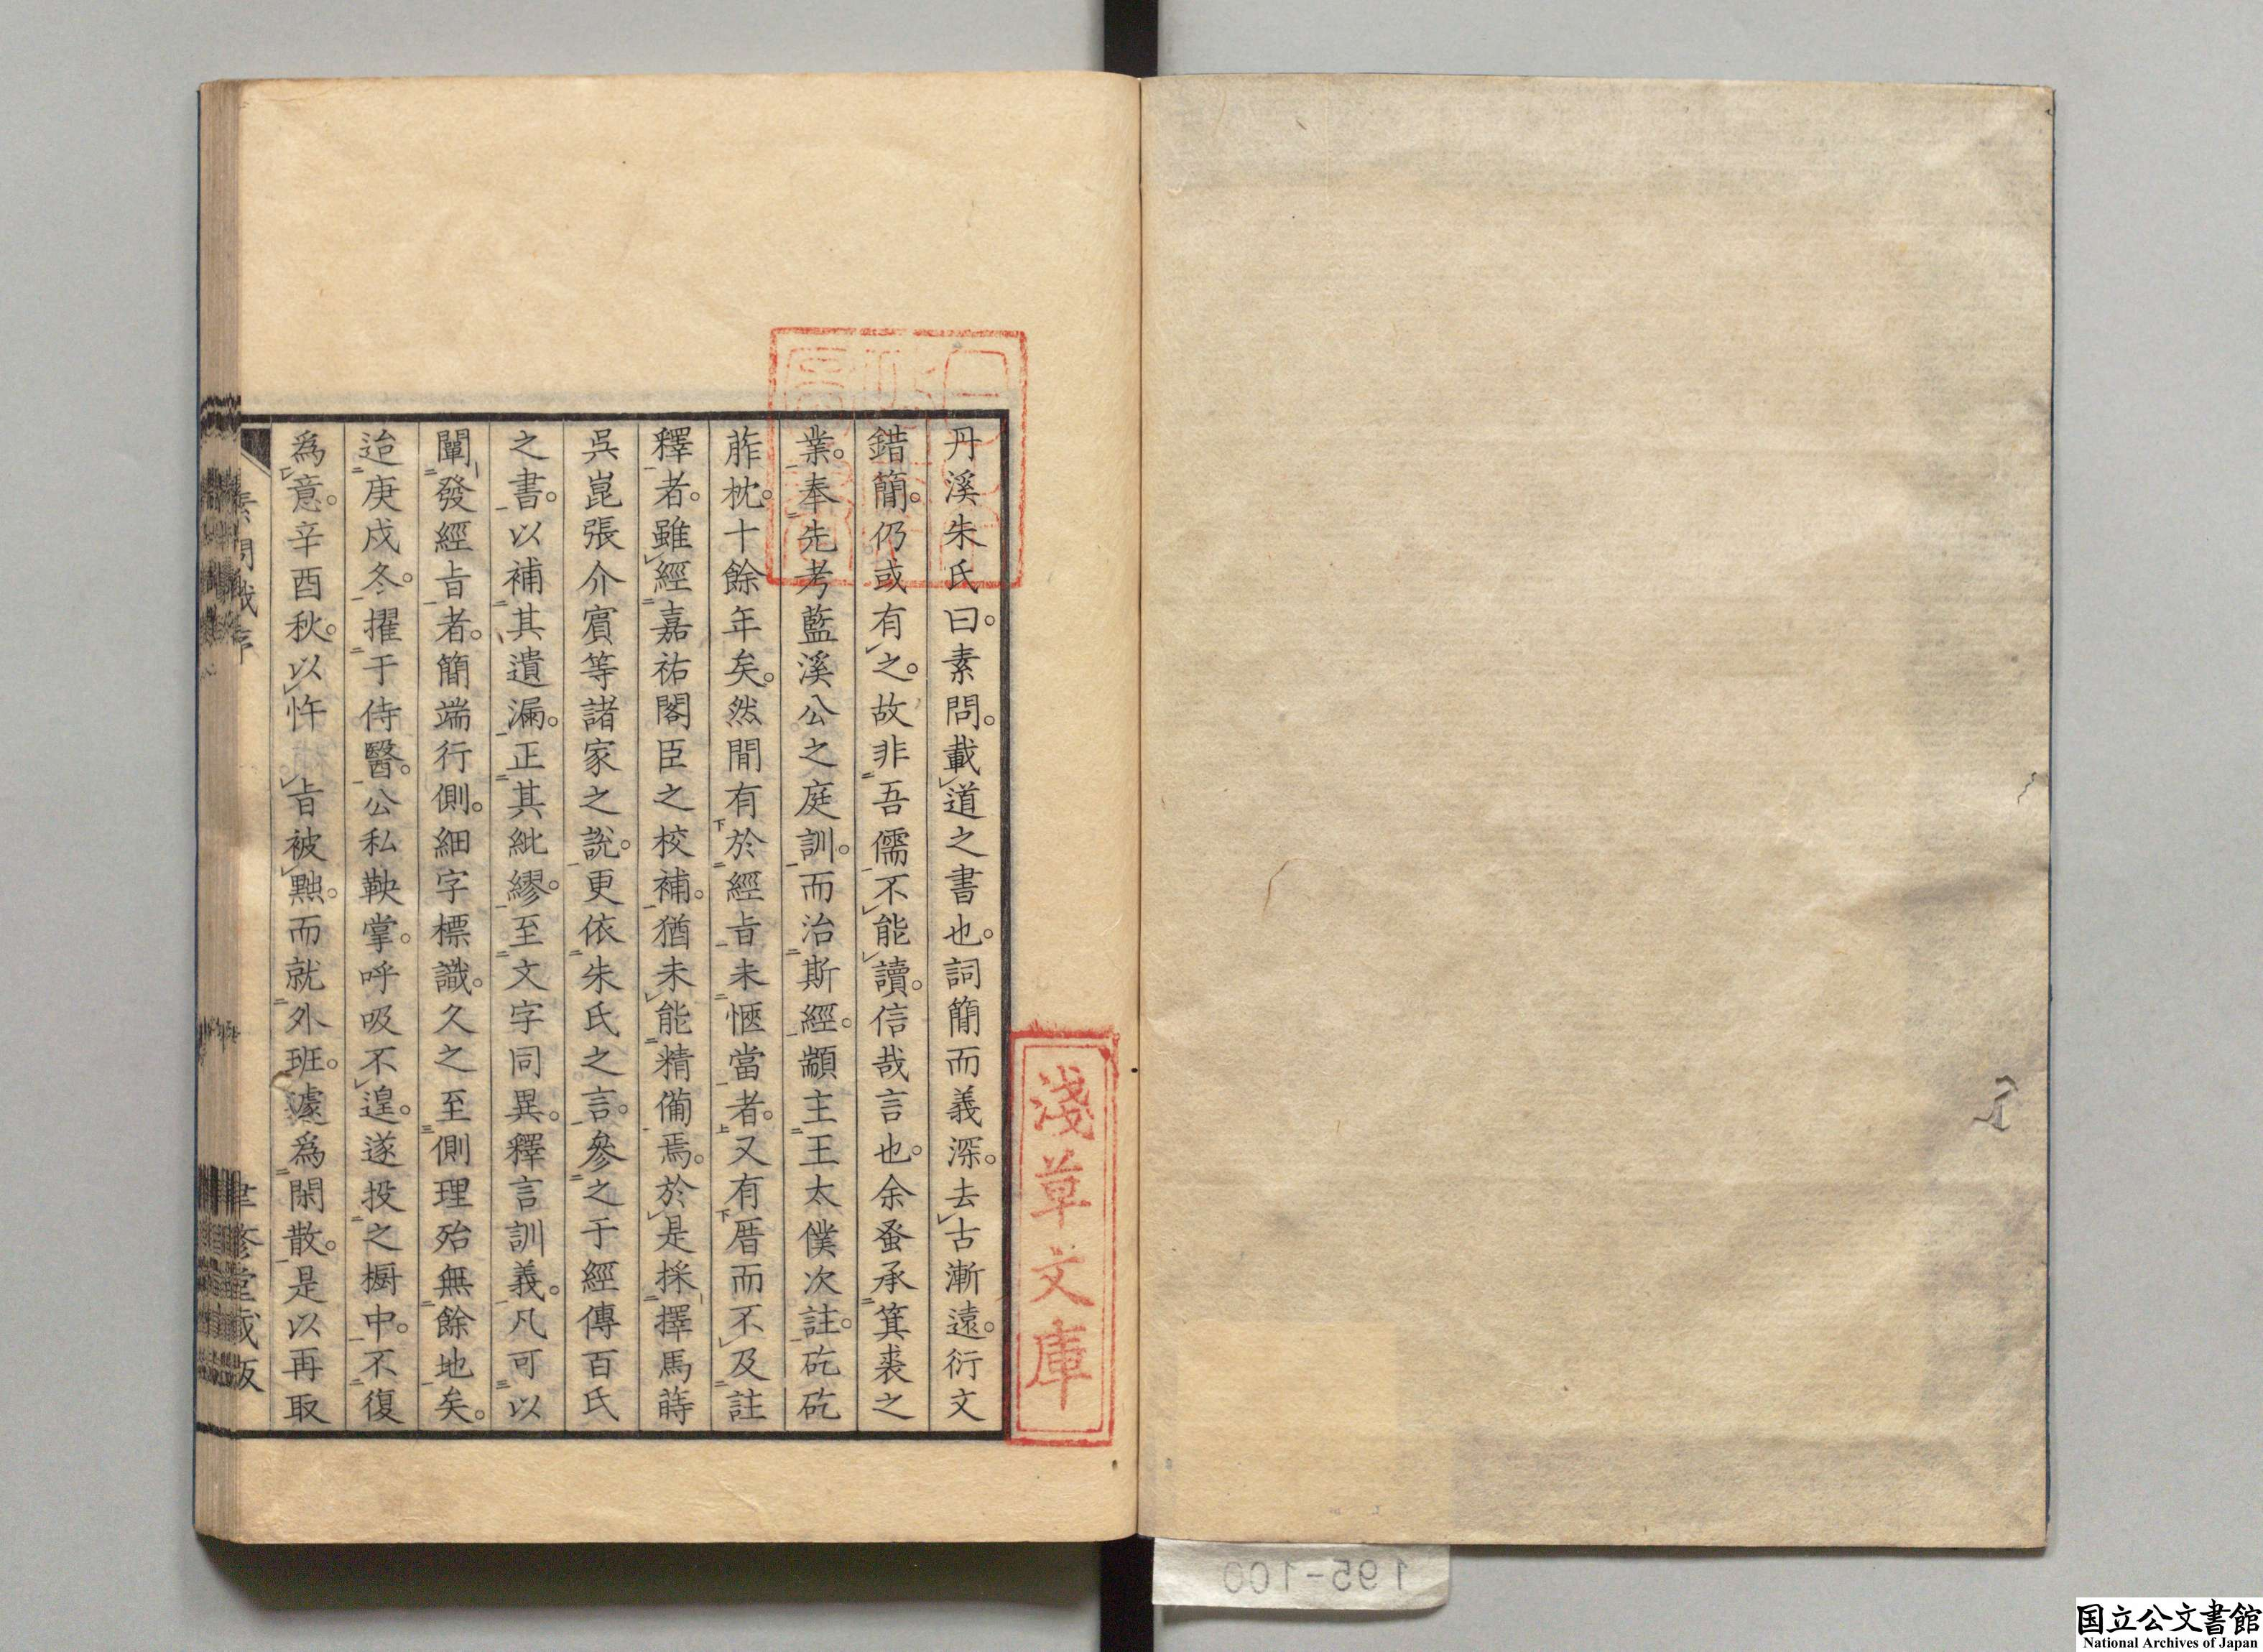 丹溪朱氏曰。素問。載道之書也。詞簡而義深。去古漸遠。衍文
錯簡。仍或有之。故非吾儒不能讀。信哉言也。余蚤承箕裘之
業。奉先考藍溪公之庭訓。而治斯經。顓主王太僕次註。矻矻
葄枕。十餘年矣。然間有於經旨未愜當者。又有厝而不及註
釋者。雖經嘉祐閣臣之校補。猶未能精備焉。於是採擇馬蒔
吳崑張介賓等諸家之說。更依朱氏之言。參之于經傳百氏
之書。以補其遺漏。正其紕繆。至文字同異。釋言訓義。凡可以
闡發經旨者。簡端行側。細字標識。久之至側理殆無餘地矣。
迨庚戌冬。擢于侍醫。公私鞅掌。呼吸不遑。遂投之櫥中。不復
為意。辛酉秋。以忤 旨被黜。而就外班。遽為閑散。是以再取
淺草文庫
195-100
国立公文書館
National Archives of Japan